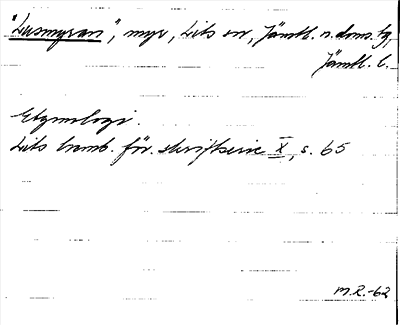 "Lusmyran", myr, Lits sn, Jämtl. n. doms. tg,
Jämtl. l.
Etymologi.
Lits hemb. för. skriftserie X, s. 65
M.R.-62